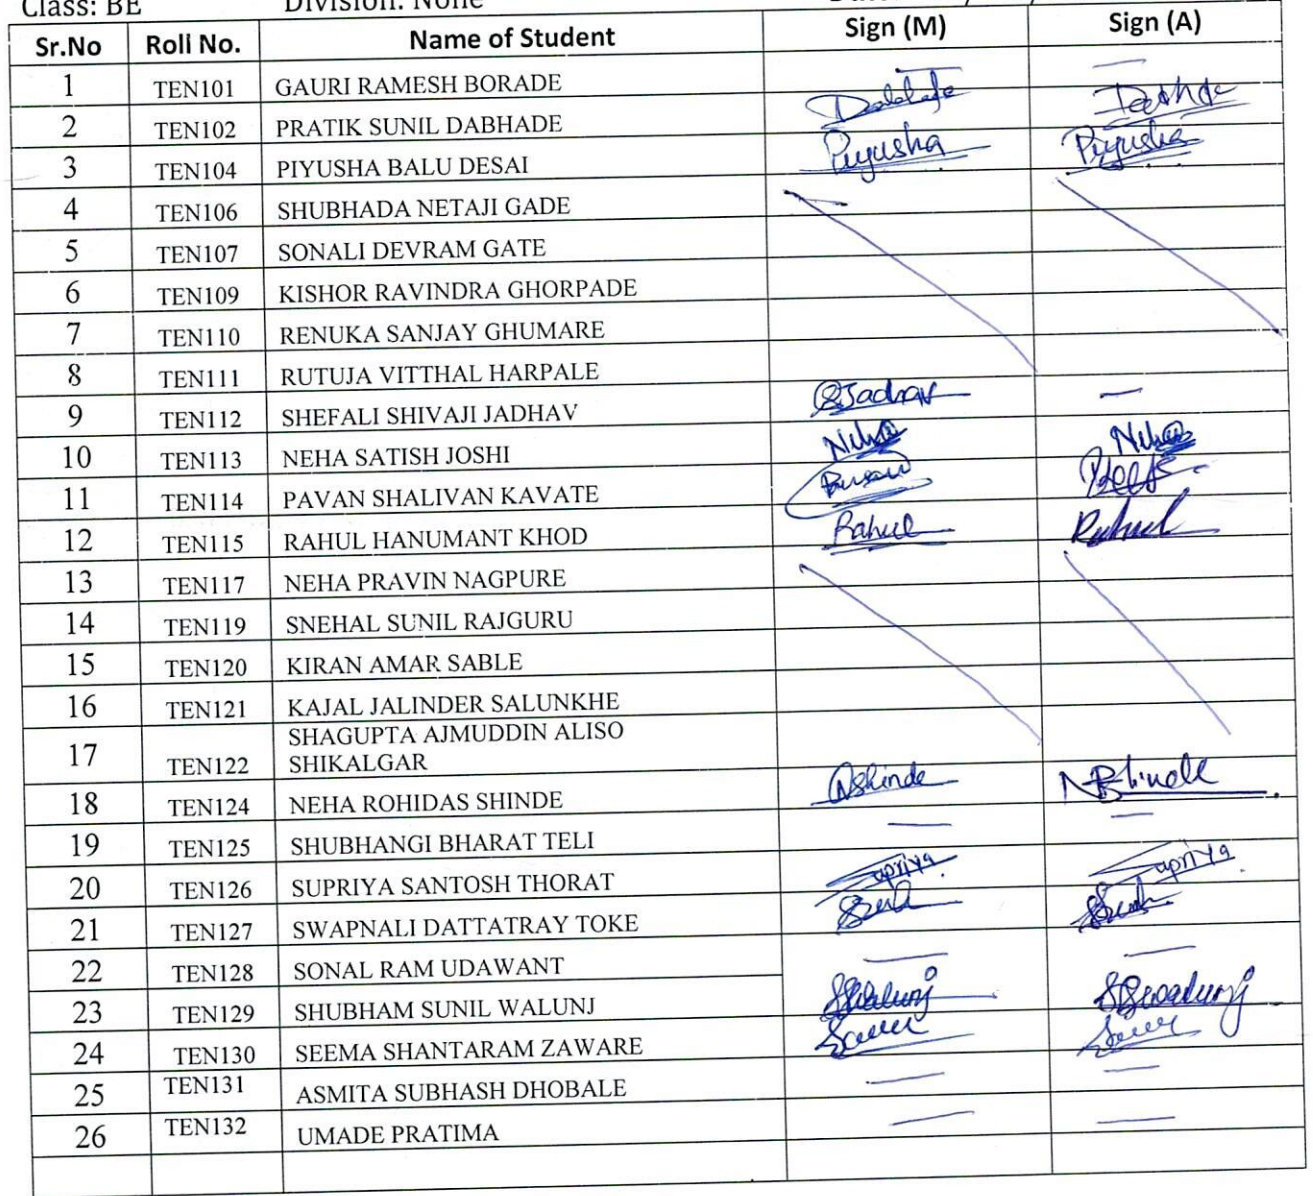 Class: BE Division: None
Sr.No Roll No. Name of Student Sign (M) Sign (A)
1 TEN101 GAURI RAMESH BORADE — —
2 TEN102 PRATIK SUNIL DABHADE Dabhade
3 TEN104 PIYUSHA BALU DESAI Piyusha Piyusha
4 TEN106 SHUBHADA NETAJI GADE
5 TEN107 SONALI DEVRAM GATE
6 TEN109 KISHOR RAVINDRA GHORPADE
7 TEN110 RENUKA SANJAY GHUMARE
8 TEN111 RUTUJA VITTHAL HARPALE
9 TEN112 SHEFALI SHIVAJI JADHAV SJadhav —
10 TEN113 NEHA SATISH JOSHI Neha Neha
11 TEN114 PAVAN SHALIVAN KAVATE
12 TEN115 RAHUL HANUMANT KHOD Rahul Rahul
13 TEN117 NEHA PRAVIN NAGPURE
14 TEN119 SNEHAL SUNIL RAJGURU
15 TEN120 KIRAN AMAR SABLE
16 TEN121 KAJAL JALINDER SALUNKHE
17 TEN122 SHAGUPTA AJMUDDIN ALISO
SHIKALGAR
18 TEN124 NEHA ROHIDAS SHINDE NShinde NRShinde
19 TEN125 SHUBHANGI BHARAT TELI — —
20 TEN126 SUPRIYA SANTOSH THORAT Supriya Supriya
21 TEN127 SWAPNALI DATTATRAY TOKE
22 TEN128 SONAL RAM UDAWANT — —
23 TEN129 SHUBHAM SUNIL WALUNJ SSWalunj SSWalunj
24 TEN130 SEEMA SHANTARAM ZAWARE
25 TEN131 ASMITA SUBHASH DHOBALE — —
26 TEN132 UMADE PRATIMA — —